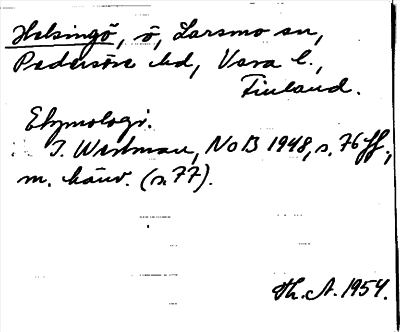 Helsingö, ö, Larsmo sn,
Pedersöre hd, Vasa l.,
Finland.
Etymologi.
I. Westman, NoB 1948, s. 76 ff.,
m. hänv. (s. 77).
Th. A. 1954.